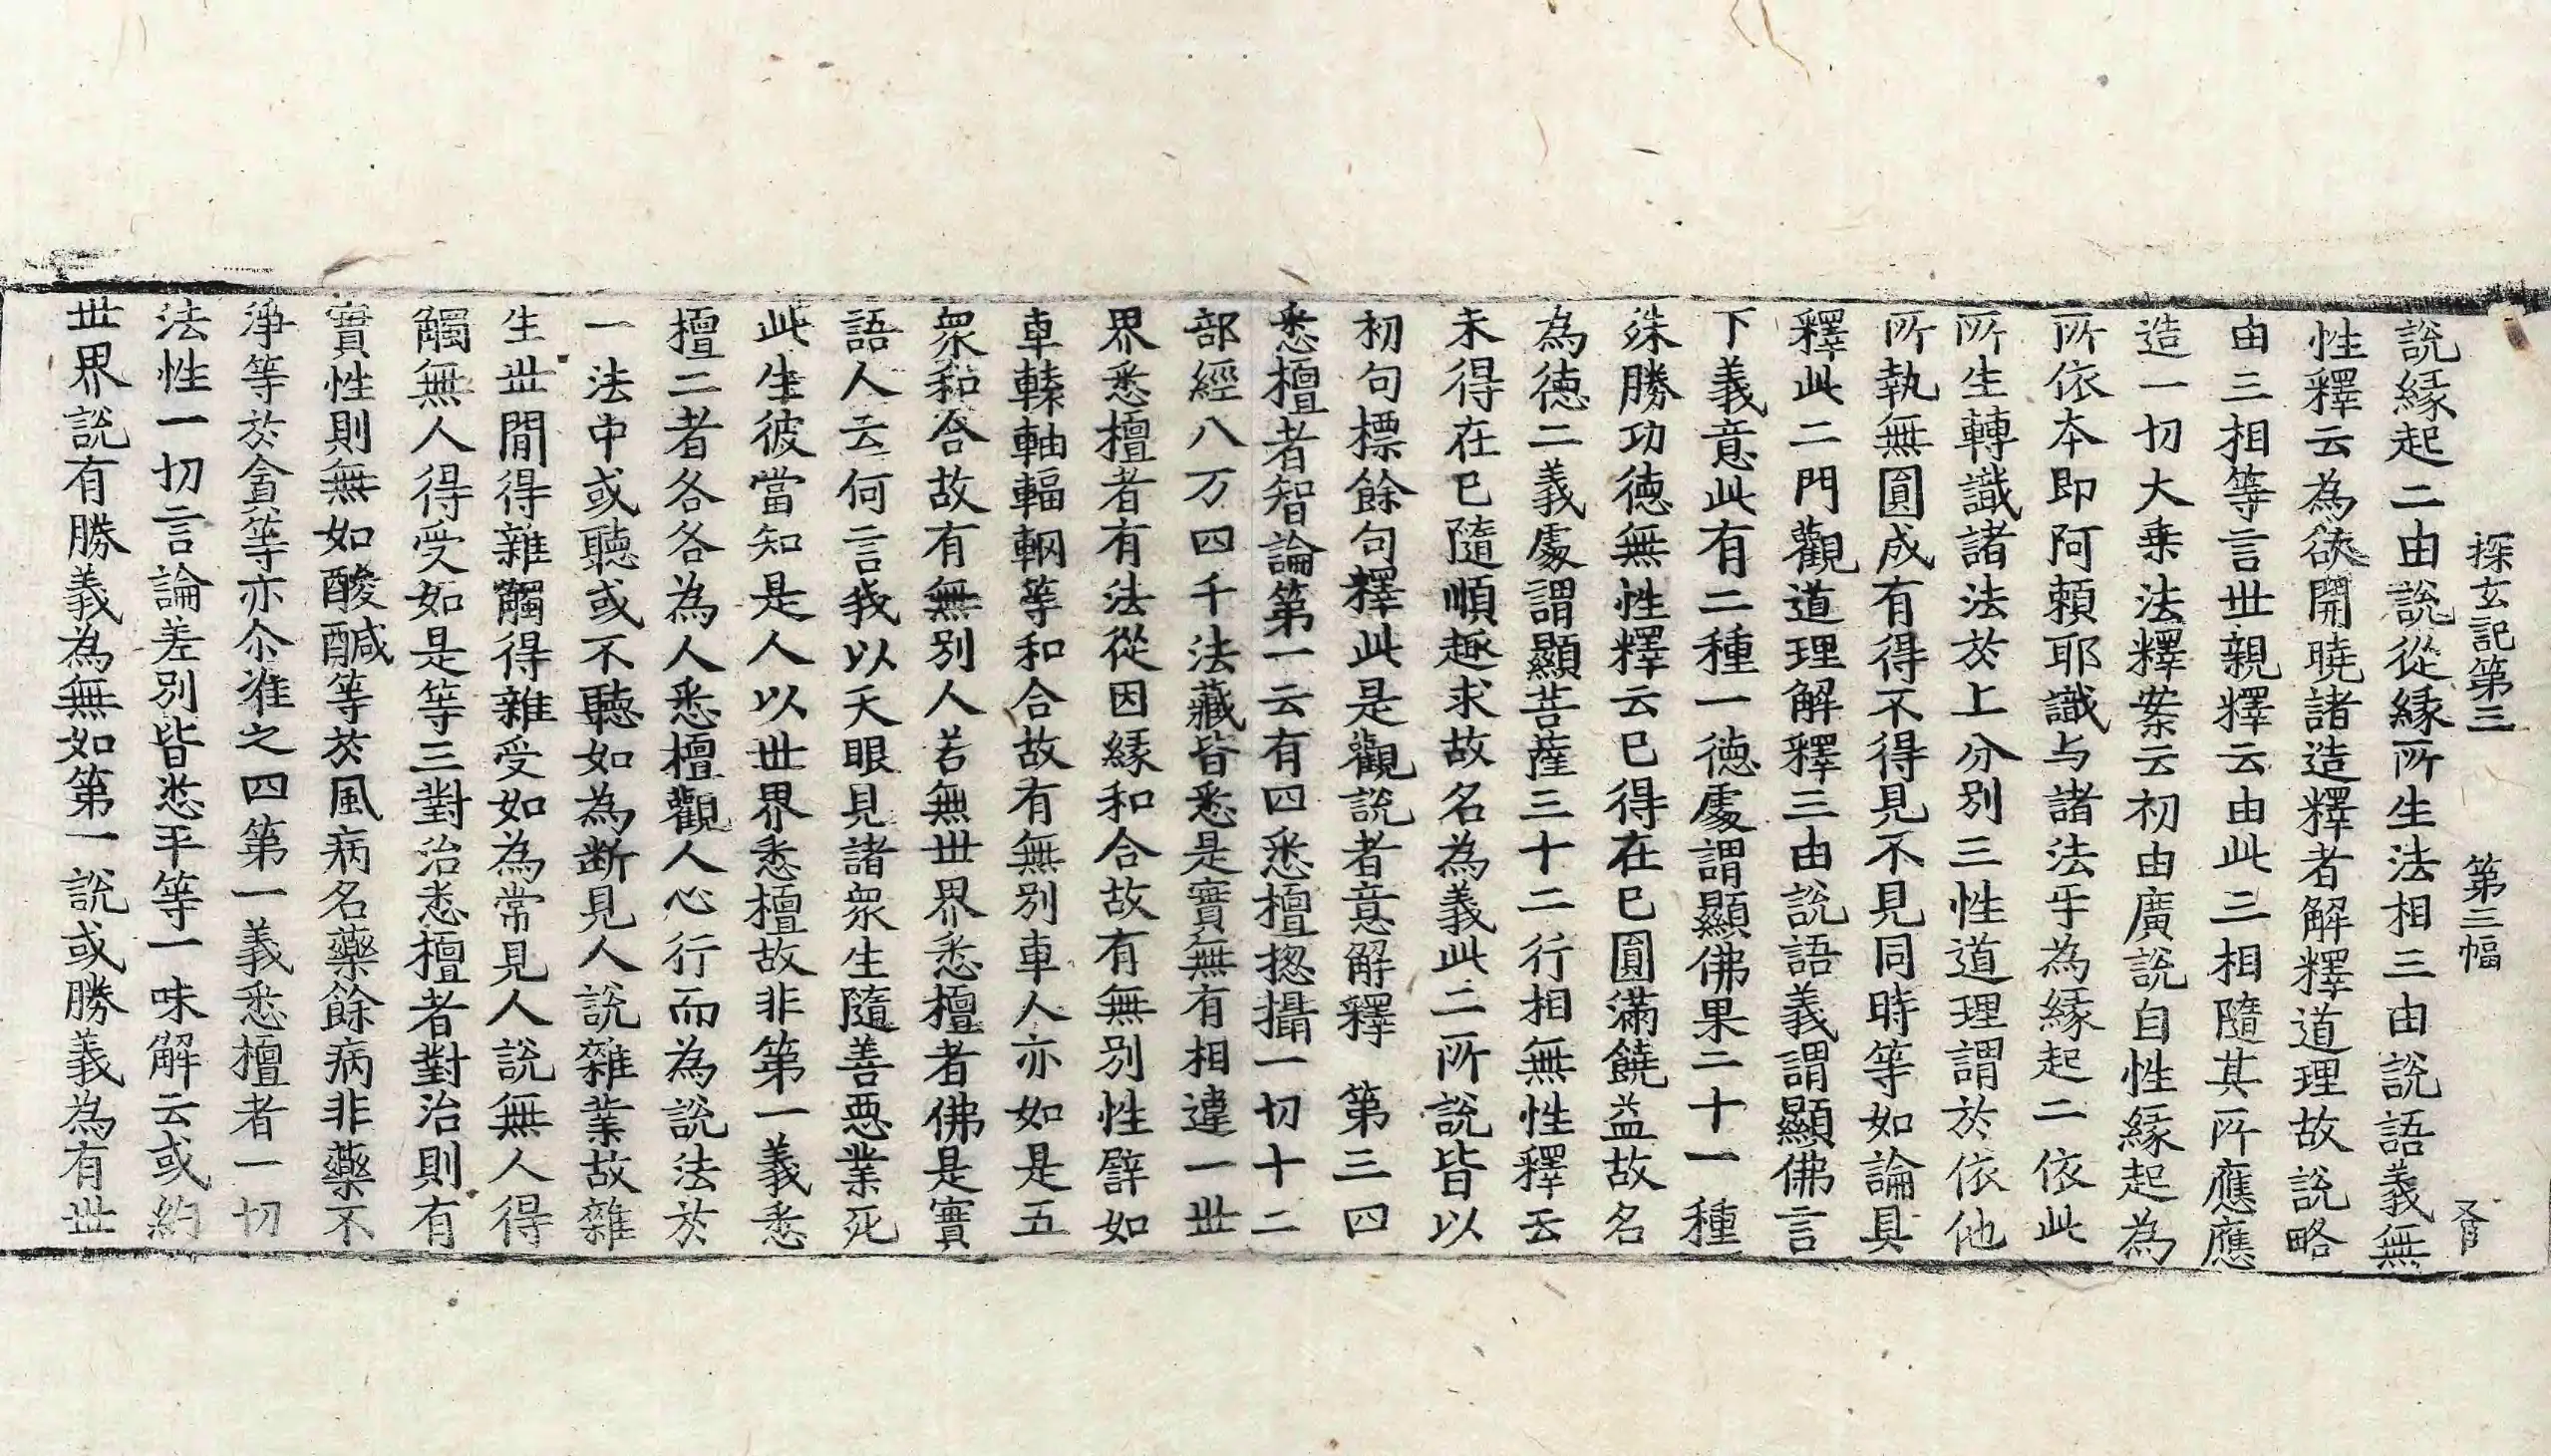 探玄記第三 第三幅
說緣起二由說從緣所生法相三由說語義無
性釋云為欲開曉諸造釋者解釋道理故說略
由三相等言世親釋云由此三相隨其所應應
造一切大乗法釋案云初由廣說自性緣起為
所依本即阿頼耶識与諸法乎為緣起二依此
所生轉識諸法於上分別三性道理謂於依他
所執無圓成有得不得見不見同時等如論具
釋此二門觀道理解釋三由說語義謂顯佛言
下義意此有二種一德處謂顯佛果二十一種
殊勝功徳無性釋云已得在已圓滿饒益故名
為徳二義處謂顯菩薩三十二行相無性釋云
未得在已隨順趣求故名為義此二所說皆以
初句標餘句釋此是觀說者意解釋 第三四
悉檀者智論第一云有四悉檀揔攝一切十二
部經八万四千法藏皆悉是實無有相違一世
界悉檀者有法從因緣和合故有無別性譬如
車轅軸輻輞等和合故有無別車人亦如是五
衆和合故有無別人若無世界悉檀者佛是實
語人云何言我以天眼見諸衆生隨善惡業死
此生彼當知是人以世界悉檀故非第一義悉
檀二者各各為人悉檀觀人心行而為說法於
一法中或聽或不聽如為断見人說雜業故雜
生世間得雜觸得雜受如為常見人說無人得
觸無人得受如是等三對治悉檀者對治則有
實性則無如酸醎等於風病名藥餘病非藥不
淨等於貪等亦尒准之四第一義悉檀者一切
法性一切言論差別皆悉平等一味解云或約
世界說有勝義為無如第一說或勝義為有世